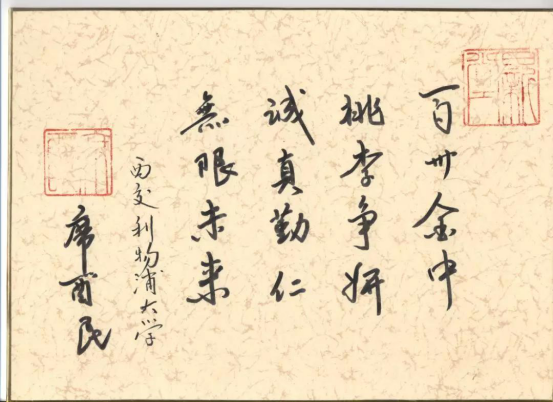 百卅金中
桃李争妍
诚真勤仁
無限未来
西交利物浦大学
席酉民